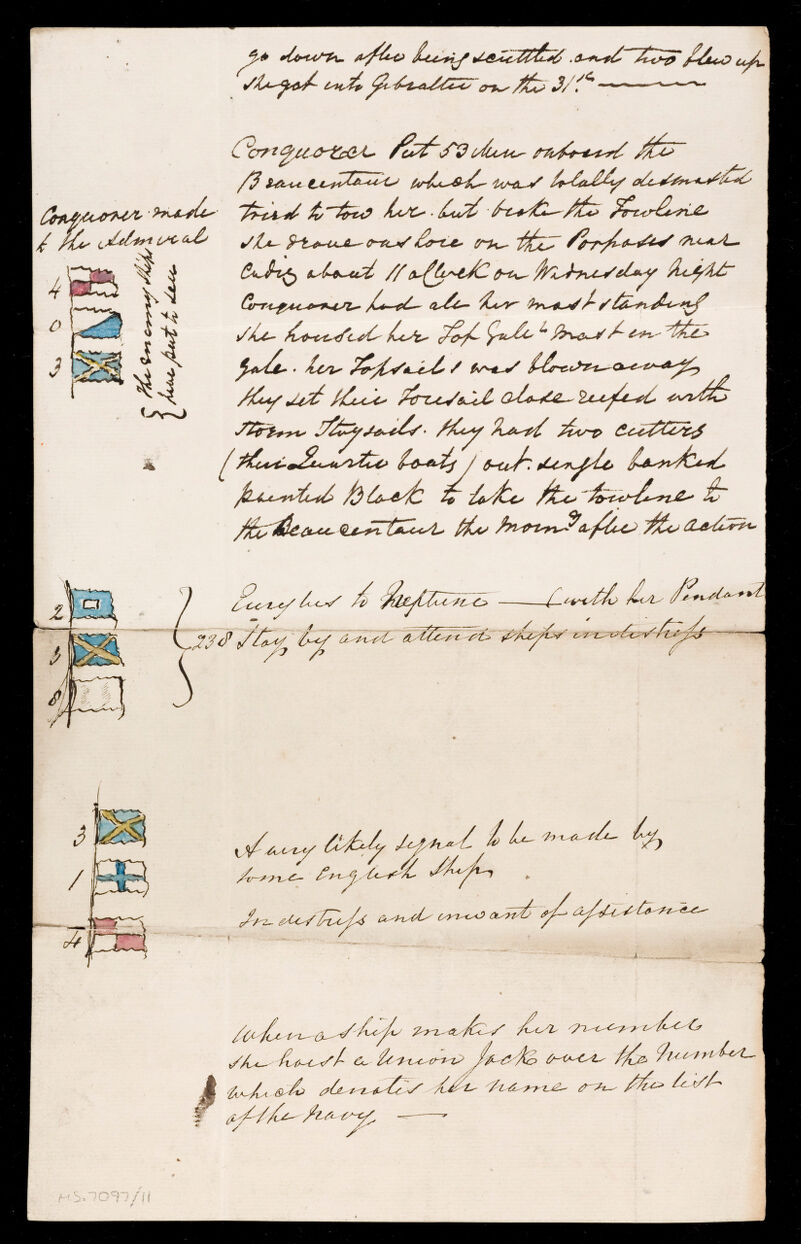 go down after being scuttled and two blew up
she got into Gibralter on the 31.st
Conquoror Put 53 Men onboard the
Beaucentaur which was totally desmasted
tried to tow her. but broke the Towline
she drove onshore on the Porposes near
Cadiz about 11 oClock on Wednesday Night
Conquoror had all her mast standing
she housed her Top Gale.t Mast in the
gale. her Topsails was blown away
they set their Foresail close reefed with
storm Staysails. they had two cutters
(their Quarter boats) out. single banked
painted Black to take the towline to
the Beaucentaur the Morn.g after the action
Conquoror made
to the Admiral
4
0
3
The enemy ships
have put to sea
2
3
8
238
Euryles to Neptune — (with her Pendant
Stay by and attend ships in distress
3
1
4
A very likely signal to be made by
some English Ship
In distress and in want of assistance
When a ship makes her number
she hoist a Union Jack over the Number
which denotes her name on the list
of the Navy —
MS.7097/11